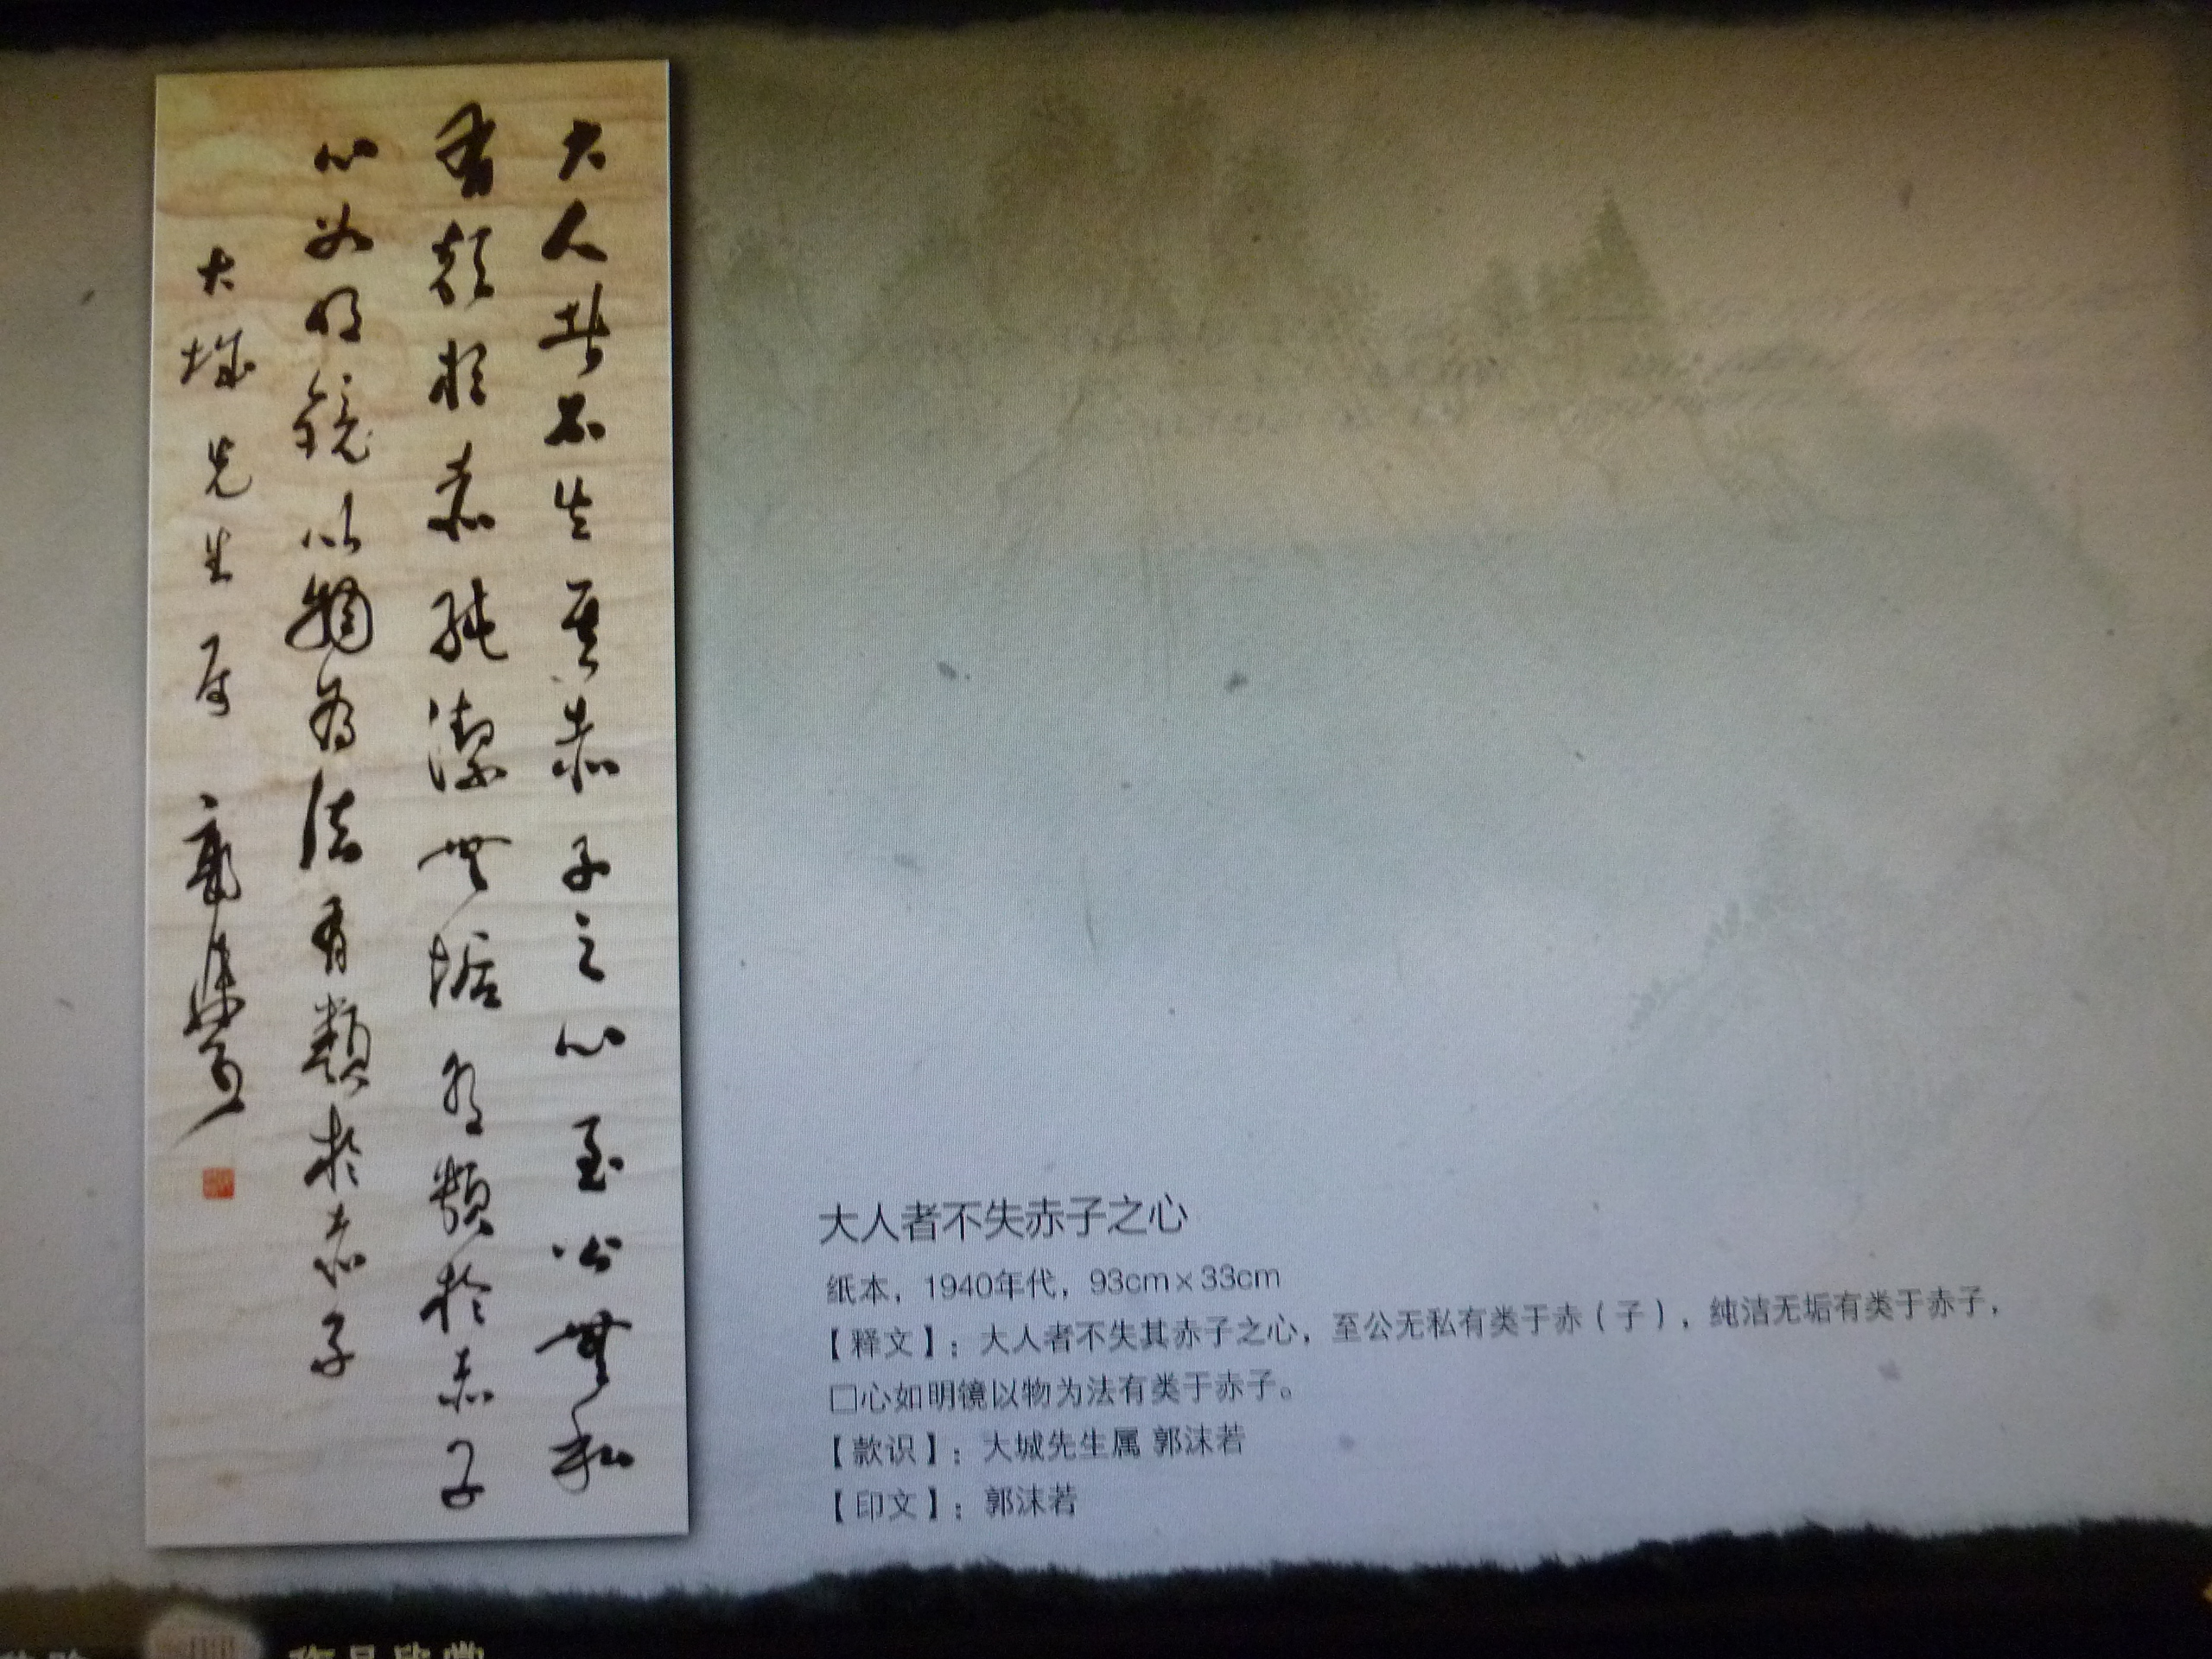 大人者不失其赤子之心至公無私
有類於赤純潔無垢有類於赤子
心如明鏡以物為法有類於赤子
大城先生属 郭沫若
大人者不失赤子之心
纸本，1940年代，93cm×33cm
【释文】：大人者不失其赤子之心，至公无私有类于赤（子），纯洁无垢有类于赤子，
□心如明镜以物为法有类于赤子。
【款识】：大城先生属 郭沫若
【印文】：郭沫若